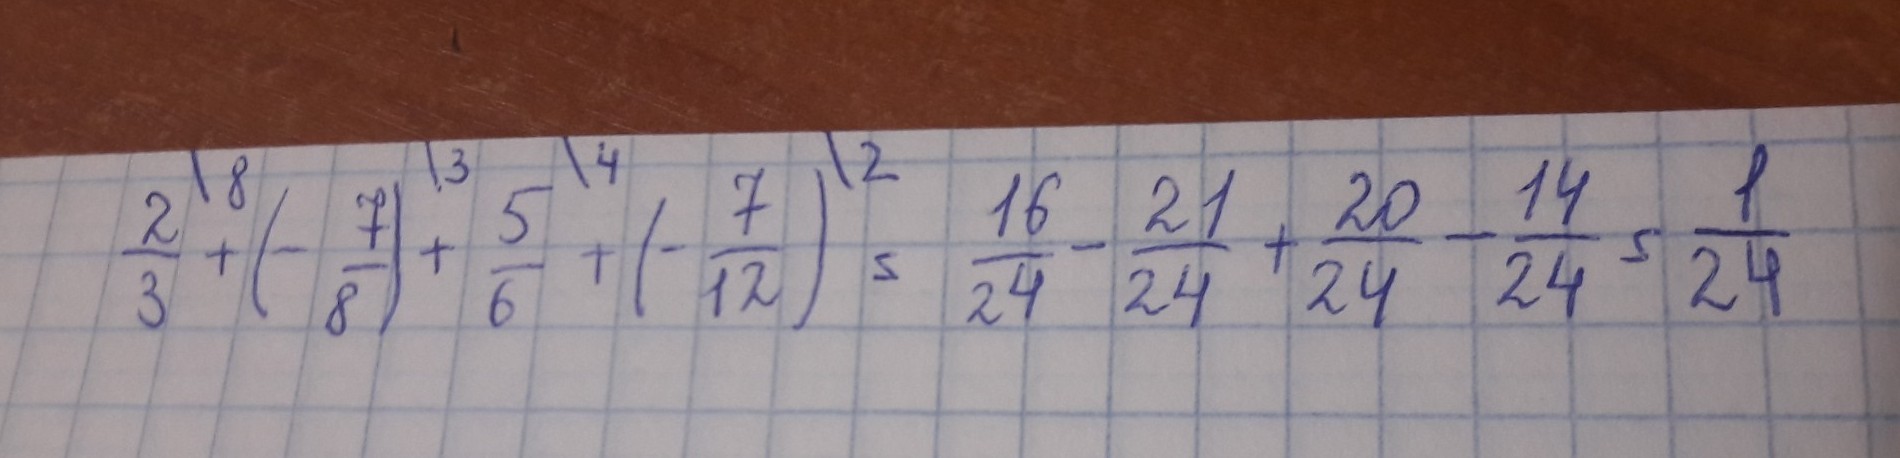 2/3 \8 + (- 7/8) \3 + 5/6 \4 + (- 7/12) \2 = 16/24 - 21/24 + 20/24 - 14/24 = 1/24